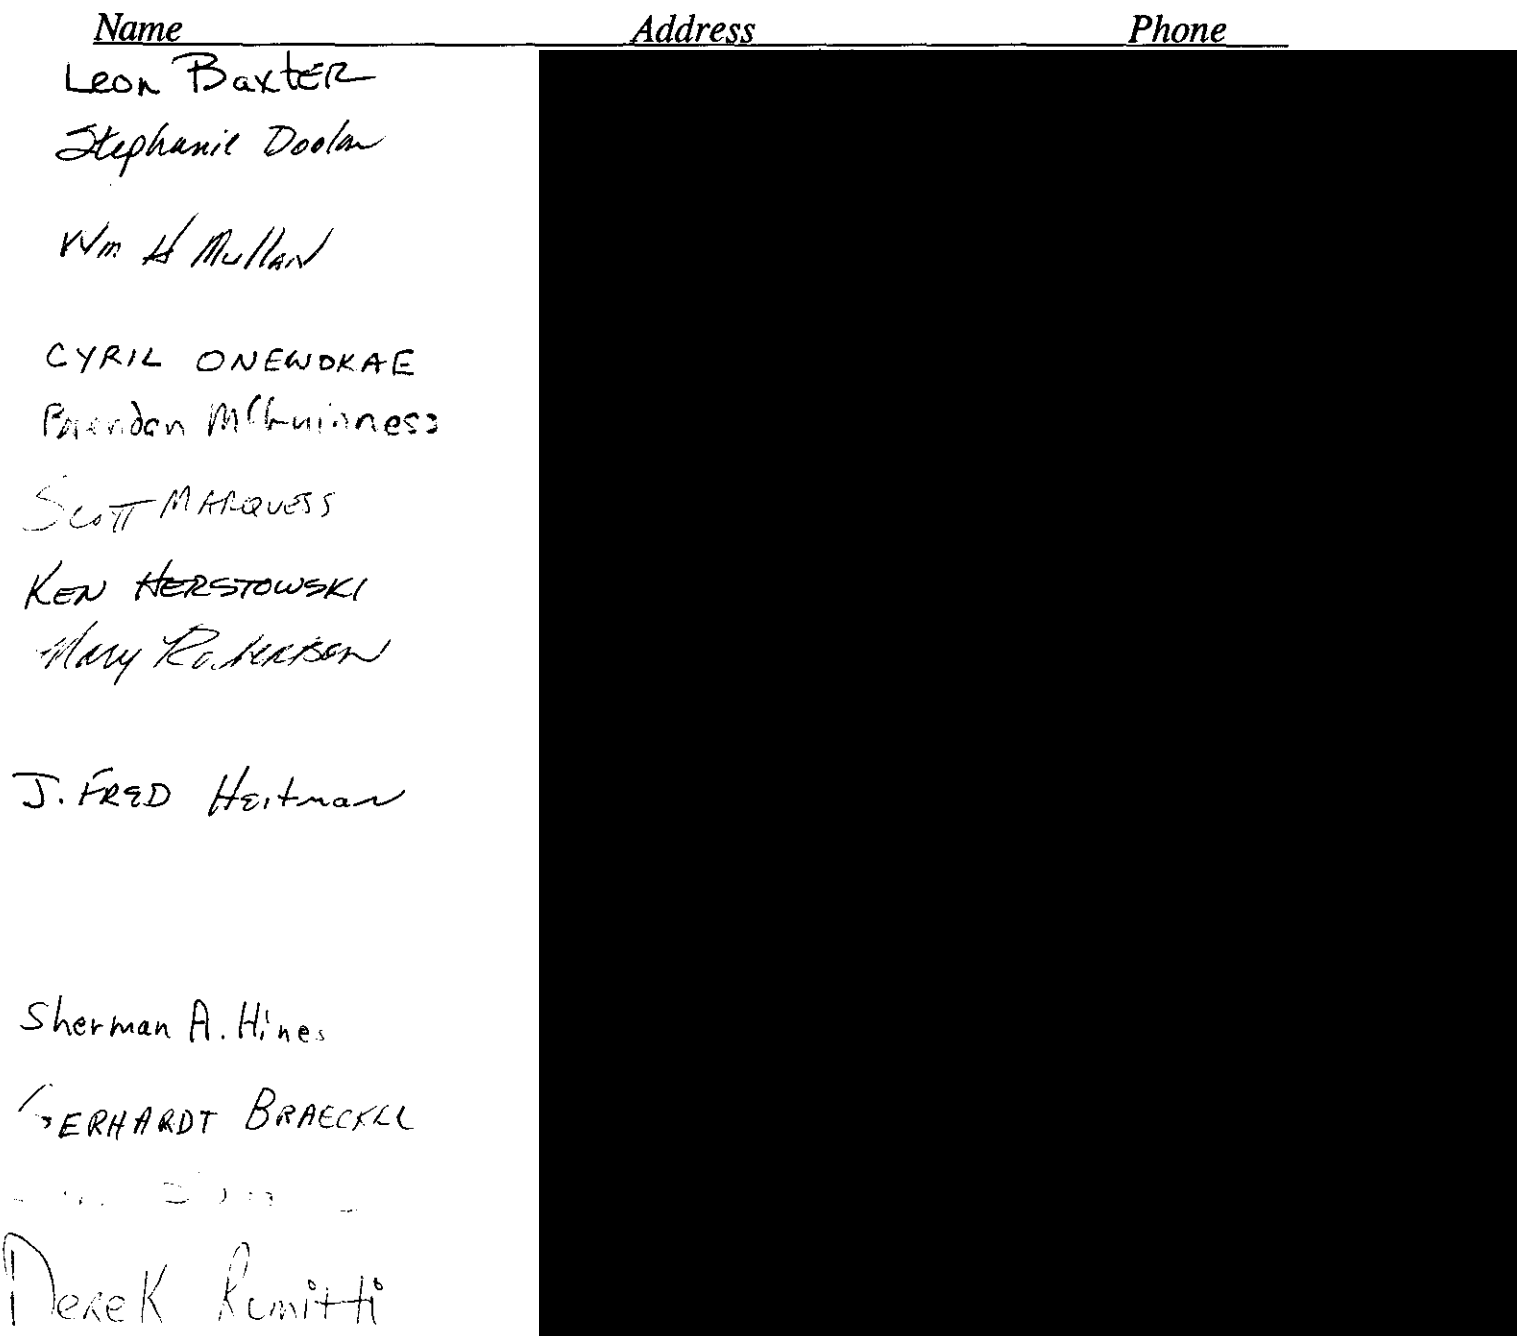 Name Address Phone
Leon Baxter
Stephanie Doolan
Wm H Mullan
CYRIL ONEWOKAE
Brendan McGuinness
Scott MARQUESS
KEN HERSTOWSKI
Mary Robertson
J. FRED Heitman
Sherman A. Hines
GERHARDT BRAECKEL
Derek